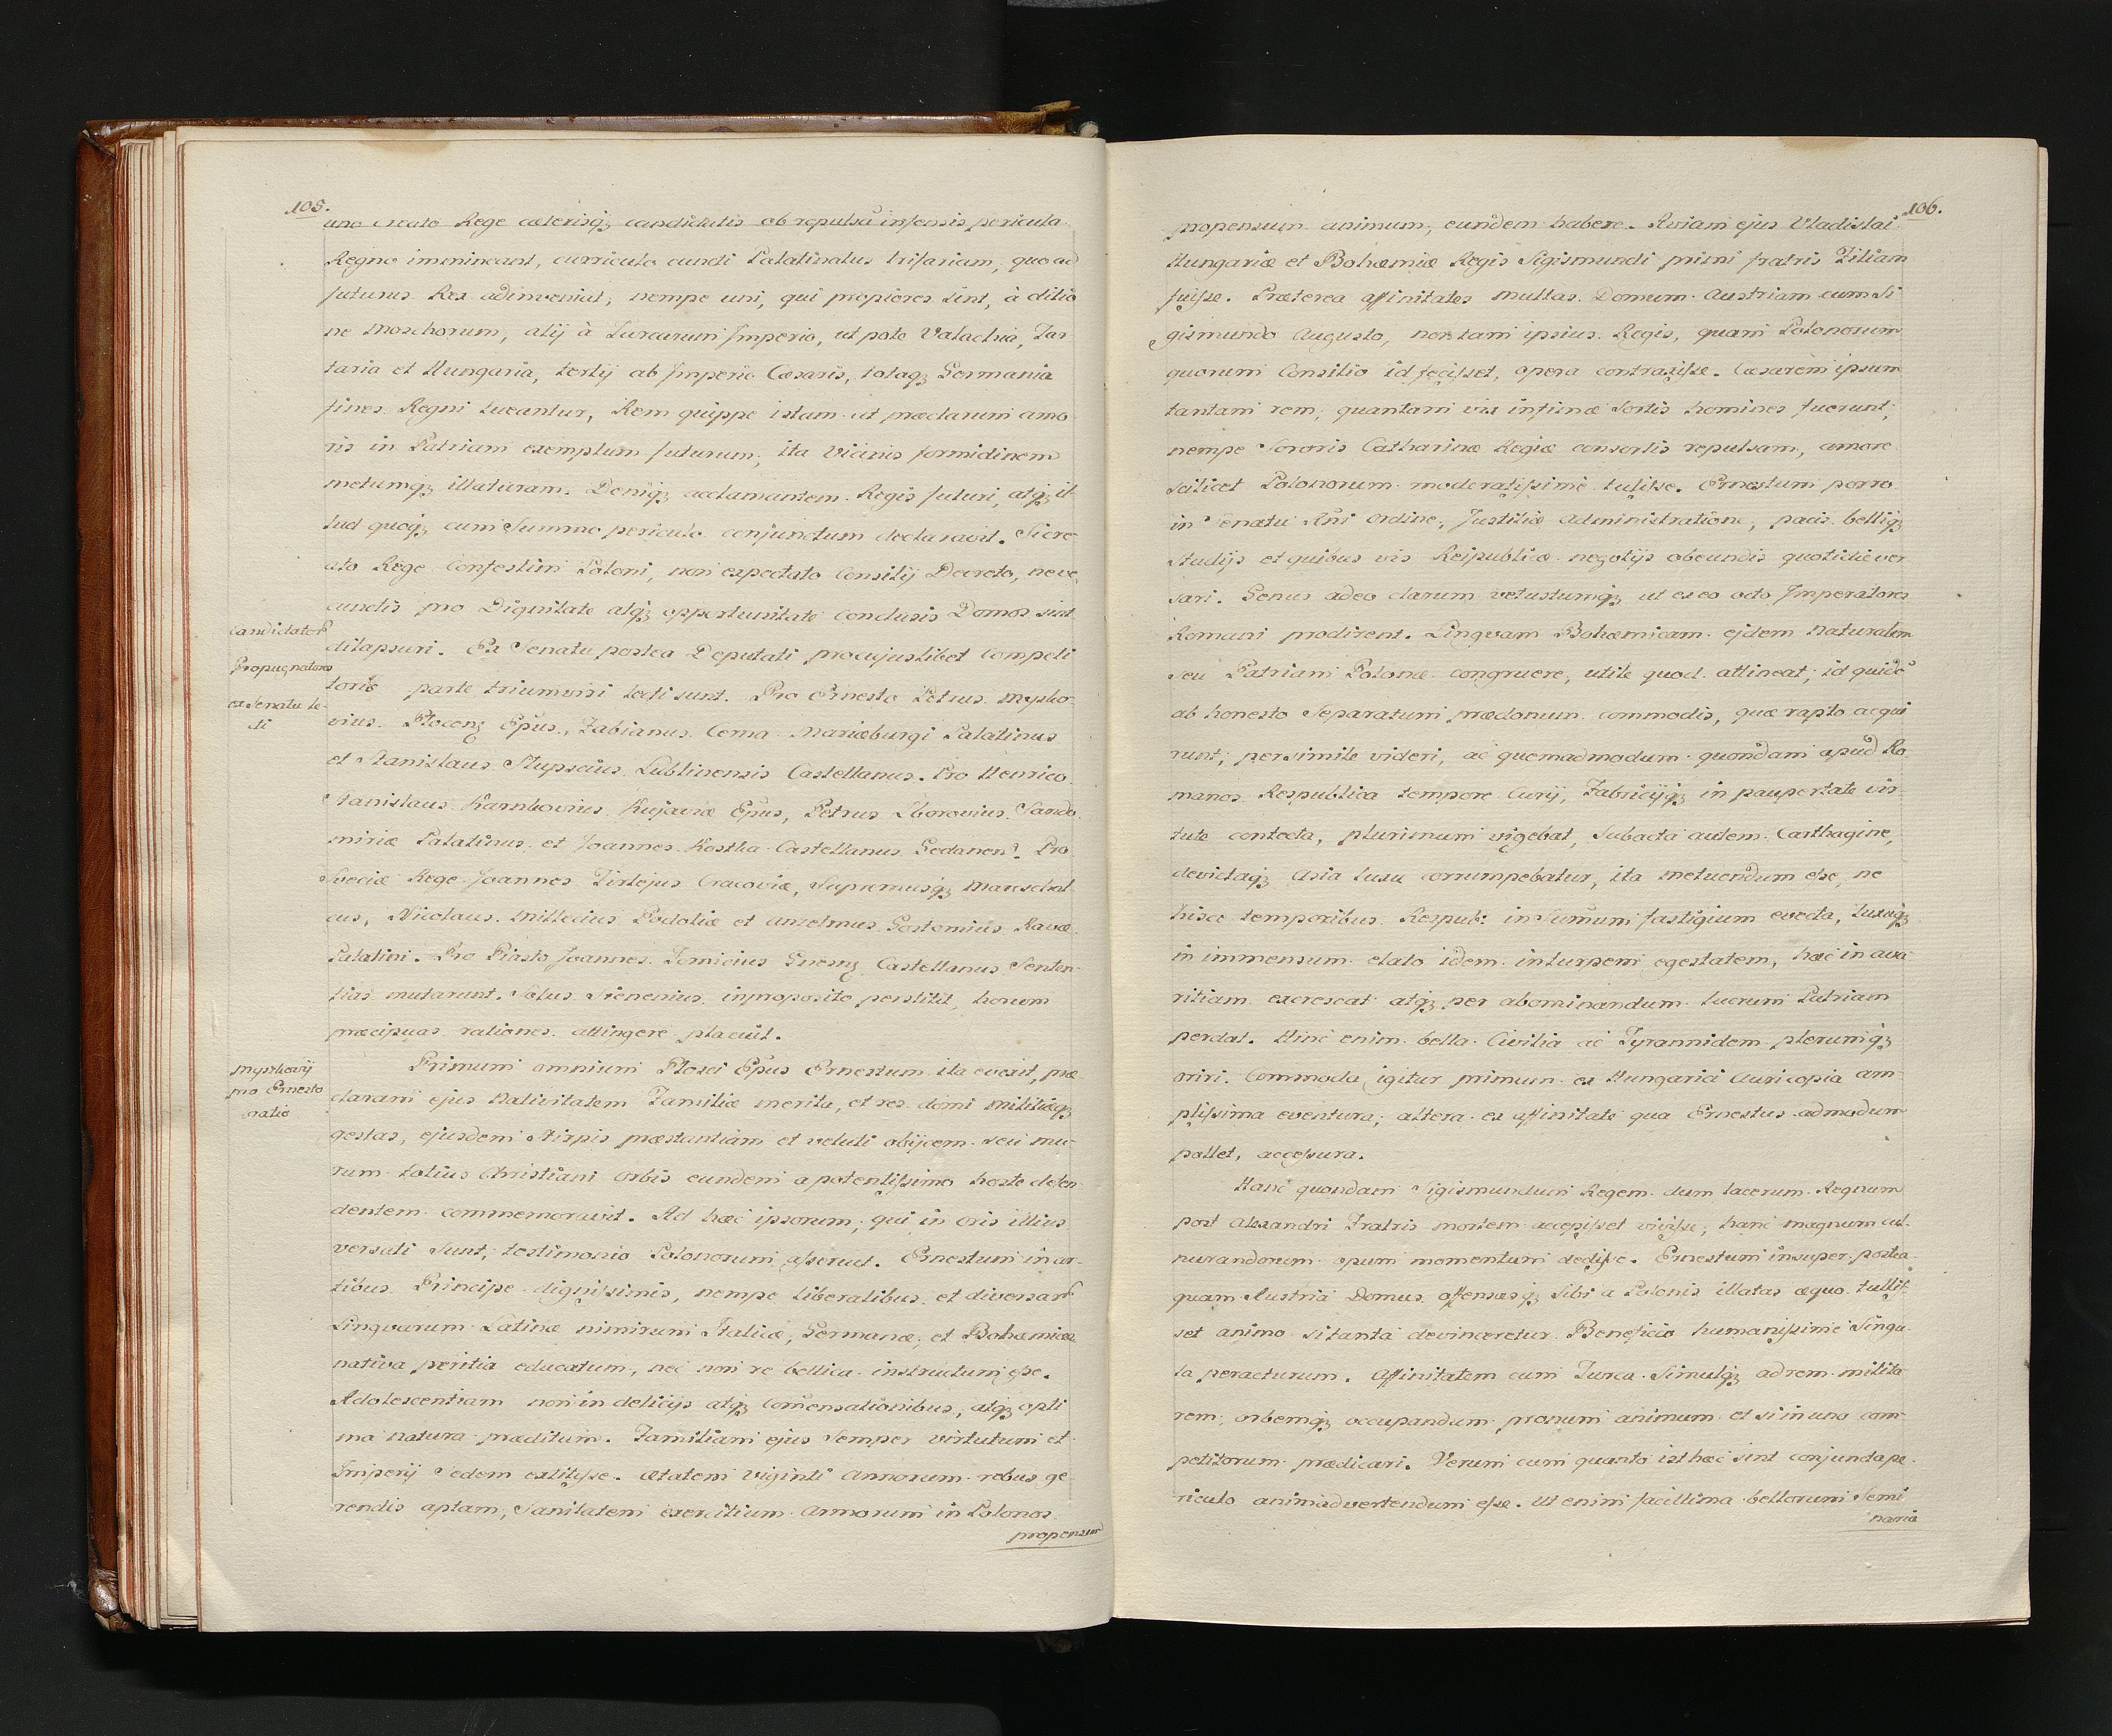 105.
uno creato Rege cæterisq; candidatis ob repulsã infensis pericula
Regno imineant, curricula cuncti Palatinatus trifariam, quo ad
futurus Rex adinveniat, nempe uni, qui propiores sint, à ditio
ne Moschorum, alij à Turcarum Imperio, ut pote Valachia, Tar
taria et Hungaria, tertij ab Imperio Cæsaris, totaq; Germania
fines Regni tueantur, Rem quippe istam ut præclarum amo
ris in Patriam exemplum futurum, ita Vicinis formidinem
metumq; illaturam. Deniq; acclamantem Regis futuri, atq; il
lud quoq; cum Summo periculo conjunctum declaravit. Si cre
ato Rege Confestim Poloni, non expectato Consilij Decreto, neve
cunctis pro Dignitate atq; opportunitate conclusis Domos sint
candidator̃
dilapsuri. Ex Senatu postea Deputati pro cujuslibet Competi
Propugnatores
toris parte triumviri lecti sunt. Pro Ernesto Petrus Myscho
ex Senatu le
cti
vius Plocenẜ Ep̃us, Fabianus Cema Mariæburgi Palatinus
et Stanislaus Slupscius Lublinensis Castellanus. Pro Henrico
Stanislaus Karnkovius Kujaviæ Ep̃us, Petrus Zborovius Sando
miriæ Palatinus et Joannes Kostka Castellanus Gedanen. Pro
Sveciæ Rege Joannes Firlejus Cracoviæ, Supremusq; Mareschal
cus, Nicolaus Mielecius Podoliæ et Anselmus Gostomius Ravæ
Palatini. Pro Piasto Joannes Tomicius Gnesnẜ Castellanus Senten
tias mutarunt. Solus Sienenius in proposito perstitit, horum
præcipuas rationes attingere placuit.
Myschovij
pro Ernesto
oratio
Primum omnium Plosci Ep̃us Ernestum ita evexit, præ
claram ejus Nativitatem Familiæ merita, et res domi militiæq;
gestas, ejusdem Stirpis præstantiam et veluti obijcem seu mu
rum totius Christiani Orbis eundem a potentissimo hoste defen
dentem commemoravit. Ad hæc ipsorum, qui in oris illius
versati sunt, testimonio Polonorum asseruit. Ernestum in ar
tibus Principe dignissimis, nempe liberalibus et diversar̃
Lingvarum Latinæ nimirum Italicæ, Germanæ, et Bohæmicæ
nativa peritia educatum, nec non re bellica instructum esse.
Adolescentiam non in delicijs atq; Com̃ensationibus, atq; opti
ma natura præditum. Familiam ejus Semper virtutum et
Imperij Sedem extitisse. ætatem viginti Annorum rebus ge
rendis aptam, Sanitatem exercitium Armorum in Polonos
propensum
106.
propensum animum, eundem habere. Aviam ejus Vladislai
Hungariæ et Bohæmiæ Regis Sigismundi primi fratris Filiam
fuisse. Præterea affinitates multas Domum Austriam cum Si
gismundo Augusto, non tam ipsius Regis, quam Polonorum
quorum Consilio id fecisset, opera contraxisse. Cæsarem ipsum
tantam rem, quantam vix infimæ Sortis homines fuerunt,
nempe Sororis Catharinæ Regiæ consortis repulsam, amore
scilicet Polonorum moderatissime tulisse. Ernestum porro
in Senatu Rñi ordine, Justitiæ Administratione, pacis belliq;
studijs et quibus vis Reipublicæ negotijs obeundis quotidie ver
sari. Genus adeo clarum vetustumq; ut ex eo octo Imperatores
Romani prodirent. Lingvam Bohæmicam ejdem Naturalem
seu Patriam Polonæ congruere, utile quod attineat, id quidẽ
ab honesto Separatum prædonum commodis, quæ rapto acqui
runt, persimile videri, ac quemadmodum quondam apud Ro
manos Respublica tempore Curij, Fabricijq; in paupertate vir
tute contecta, plurimum vigebat, Subacta autem Carthagine,
devictaq; Asia luxu corrumpebatur, ita metuendum esse, ne
hisce temporibus Respub: in Sum̃um fastigium evecta, luxuq;
in immensum elato idem in turpem egestatem, hæc in ava
ritiam excrescat atq; per abominandum lucrum Patriam
perdat. Hinc enim bella Civilia ac Tyrannidem plerumq;
oriri. Commoda igitur primum ex Hungarici Auri copia am
plissima eventura; altera ex affinitate qua Ernestus admodum
pollet, accessura.
Hanc quondam Sigismundum Regem dum lacerum Regnum
post Alexandri Fratris mortem accepisset vivisse, hanc magnum cut
nurandorum opum momentum dedisse. Ernestum insuper postea
quam Austria Domus offensasq; Sibi a Polonis illatas æquo tulis
set animo si tanta devinceretur Beneficio humanissime Singu
la peracturum. Affinitatem cum Turca Simulq; ad rem milita
rem, orbemq; occupandum pronum animum et si in uno com
petitorum prædicari. Verum cum quanto isthæc sint conjuncta pe
riculo animadvertendum esse. Ut enim facillima bellorum Semi
naria